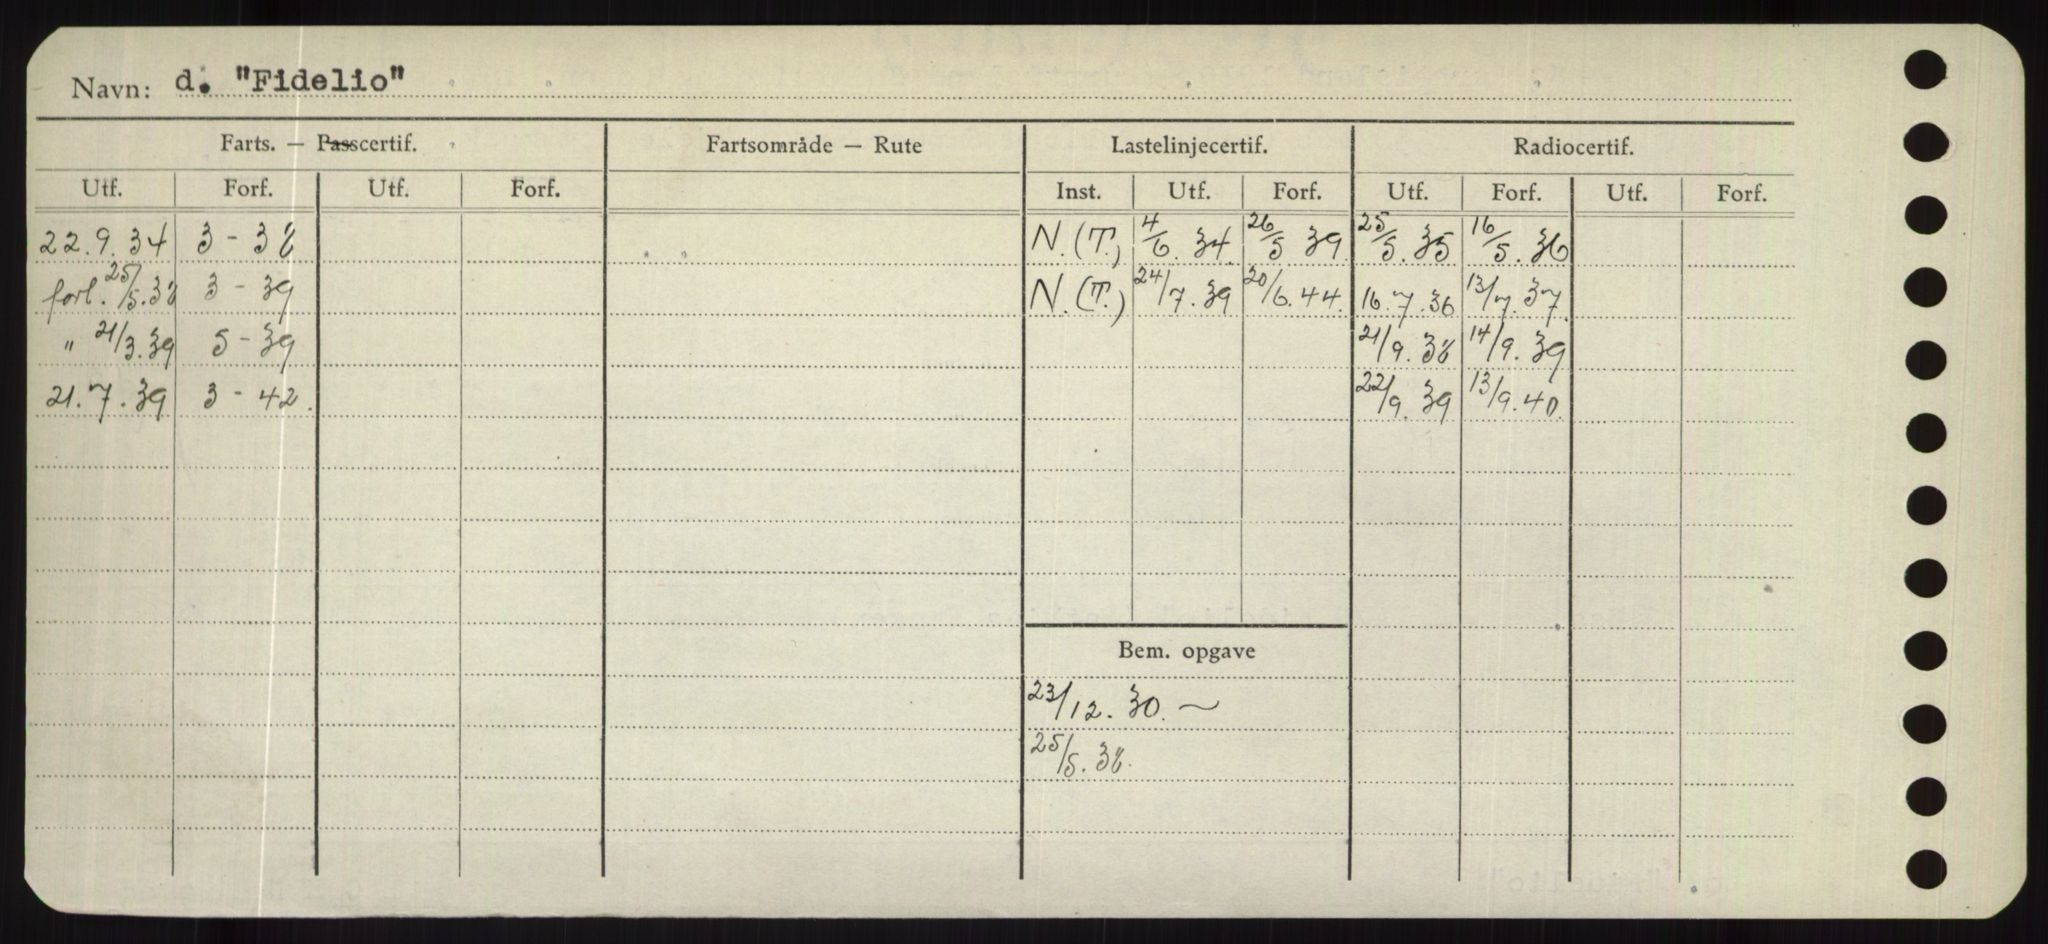 Navn: d. "Fidelio"
Farts. — Passcertif. Fartsområde — Rute Lastelinjecertif. Radiocertif.
Utf. Forf. Utf. Forf. Inst. Utf. Forf. Utf. Forf. Utf. Forf.
22.9.34 3-38 N.(T.) 4/6.34. 26/5 39. 25/5.35 16/5.36
forl. 25/5.38 3-39 N.(T.) 24/7.39 20/6.44. 16.7.36 13/7.37.
" 21/3.39 5-39 21/9.38 14/9.39
21.7.39 3-42. 22/9.39 13/9.40.
Bem. opgave
23/12.30. ~
25/5.38.